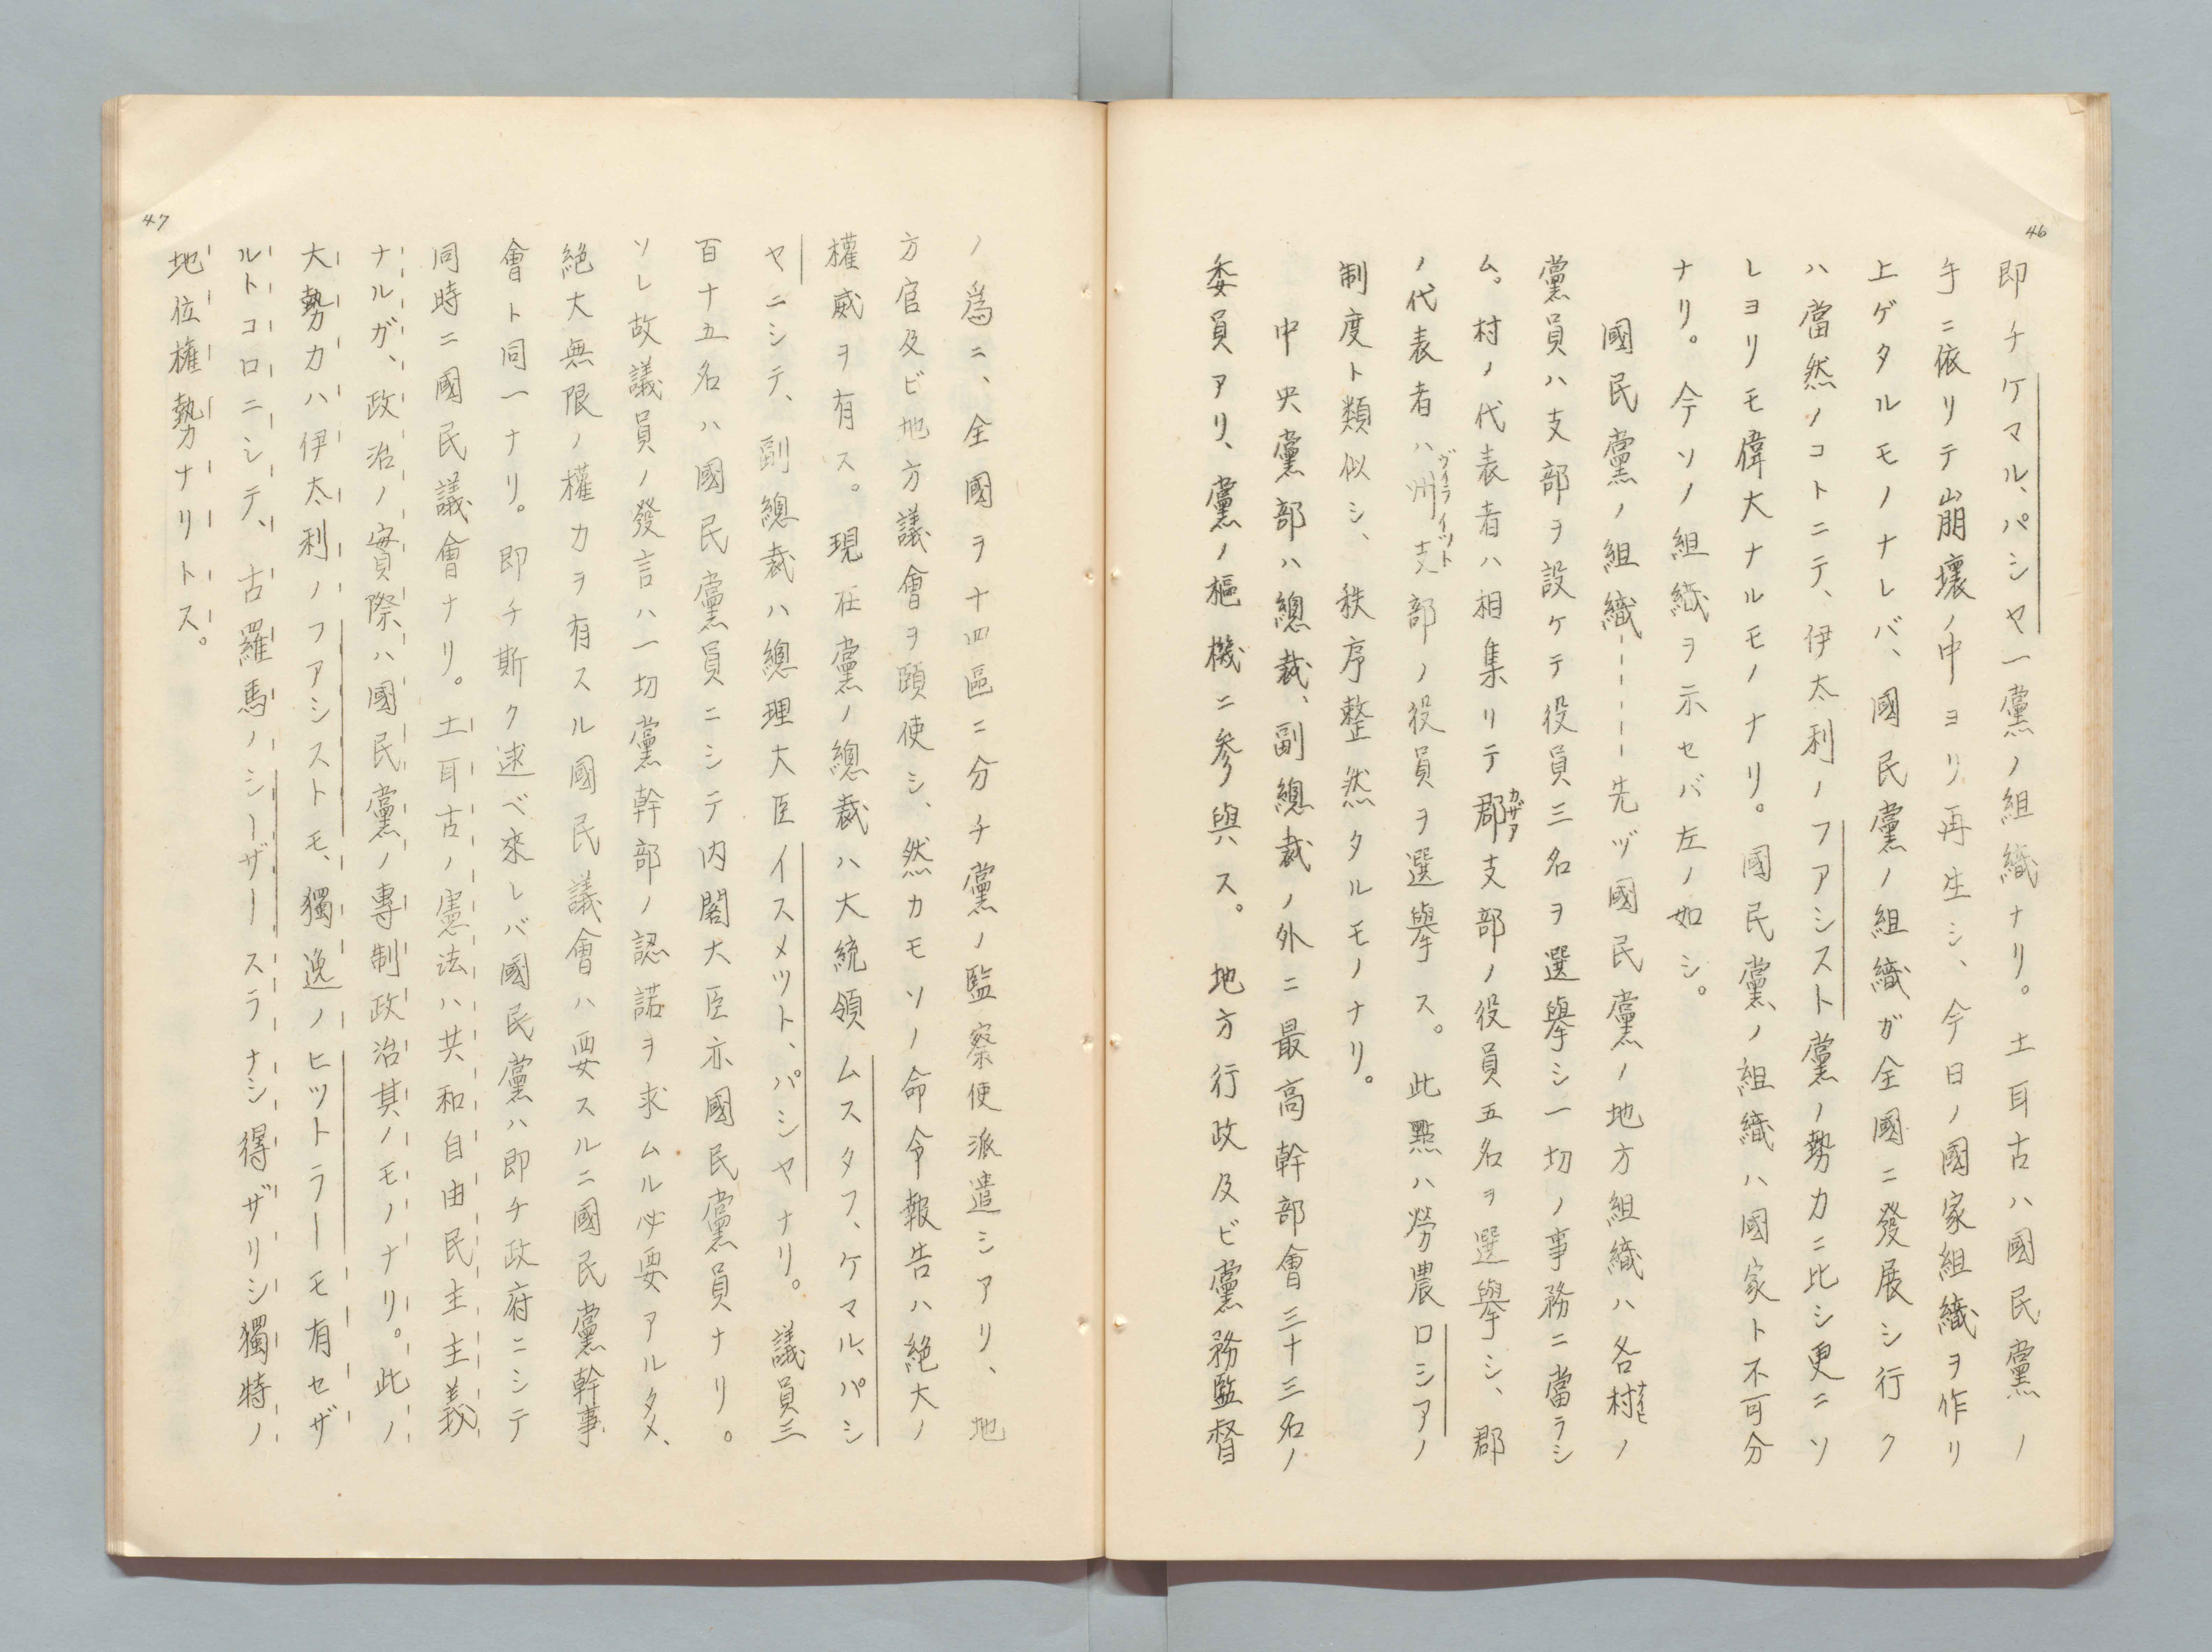 46
即チケマル、パシヤ一黨ノ組織ナリ。土耳古ハ國民黨ノ
手ニ依リテ崩壞ノ中ヨリ再生シ、今日ノ國家組織ヲ作リ
上ゲタルモノナレバ、國民黨ノ組織ガ全國ニ發展シ行ク
ハ當然ノコトニテ、伊太利ノフアシスト黨ノ勢力ニ比シ更ニソ
レヨリモ偉大ナルモノナリ。國民黨ノ組織ハ國家ト不可分
ナリ。今ソノ組織ヲ示セバ左ノ如シ。
國民黨ノ組織----先ヅ國民黨ノ地方組織ハ各村ノ
黨員ハ支部ヲ設ケテ役員三名ヲ選擧シ一切ノ事務ニ當ラシ
ム。村ノ代表者ハ相集リテ郡カザア支部ノ役員五名ヲ選擧シ、郡
ノ代表者ハ州支部ノ役員ヲ選擧ス。此點ハ勞農ロシアノ
制度ト類似シ、秩序整然タルモノナリ。
中央黨部ハ總裁、副總裁ノ外ニ最高幹部會三十三名ノ
委員アリ、黨ノ樞機ニ參與ス。地方行政及ビ黨務監督
47
ノ爲ニ、全國ヲ十四區ニ分チ黨ノ監察使派遣シアリ、地
方官及ビ地方議會ヲ頤使シ、然カモソノ命令報告ハ絶大ノ
權威ヲ有ス。現在黨ノ總裁ハ大統領ムスタフ、ケマル、パシ
ヤニシテ、副總裁ハ總理大臣イスメツト、パシヤナリ。議員三
百十五名ハ國民黨員ニシテ内閣大臣亦國民黨員ナリ。
ソレ故議員ノ發言ハ一切黨幹部ノ認諾ヲ求ムル必要アルタメ、
絶大無限ノ權力ヲ有スル國民議會ハ要スルニ國民黨幹事
會ト同一ナリ。即チ斯ク逑ベ來レバ國民黨ハ即チ政府ニシテ
同時ニ國民議會ナリ。土耳古ノ憲法ハ共和自由民主主義
ナルガ、政治ノ實際ハ國民黨ノ專制政治其ノモノナリ。此ノ
大勢力ハ伊太利ノフアシストモ、獨逸ノヒツトラーモ有セザ
ルトコロニシテ、古羅馬ノシーザースラナシ得ザリシ獨特ノ
地位權勢ナリトス。